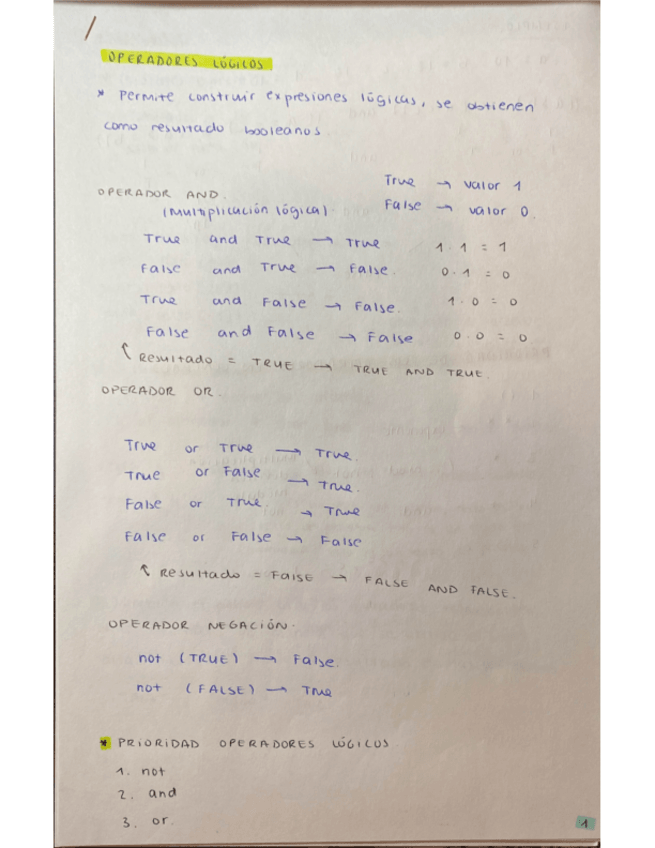 OPERADORES LÓGICOS
* Permite construir expresiones lógicas, se obtienen
como resultado booleanos
True → valor 1
OPERADOR AND.
False → valor 0.
(Multiplicación lógica)
True and True → True 1 · 1 = 1
False and True → False. 0 · 1 = 0
True and False → False. 1 · 0 = 0
False and False → False 0 · 0 = 0
↑ Resultado = TRUE → TRUE AND TRUE.
OPERADOR OR.
True or True → True.
True or False → True.
False or True → True
False or False → False
↑ Resultado = False → FALSE AND FALSE.
OPERADOR NEGACIÓN.
not (TRUE) → False.
not (FALSE) → True
* PRIORIDAD OPERADORES LÓGICOS
1. not
2. and
3. or.
1